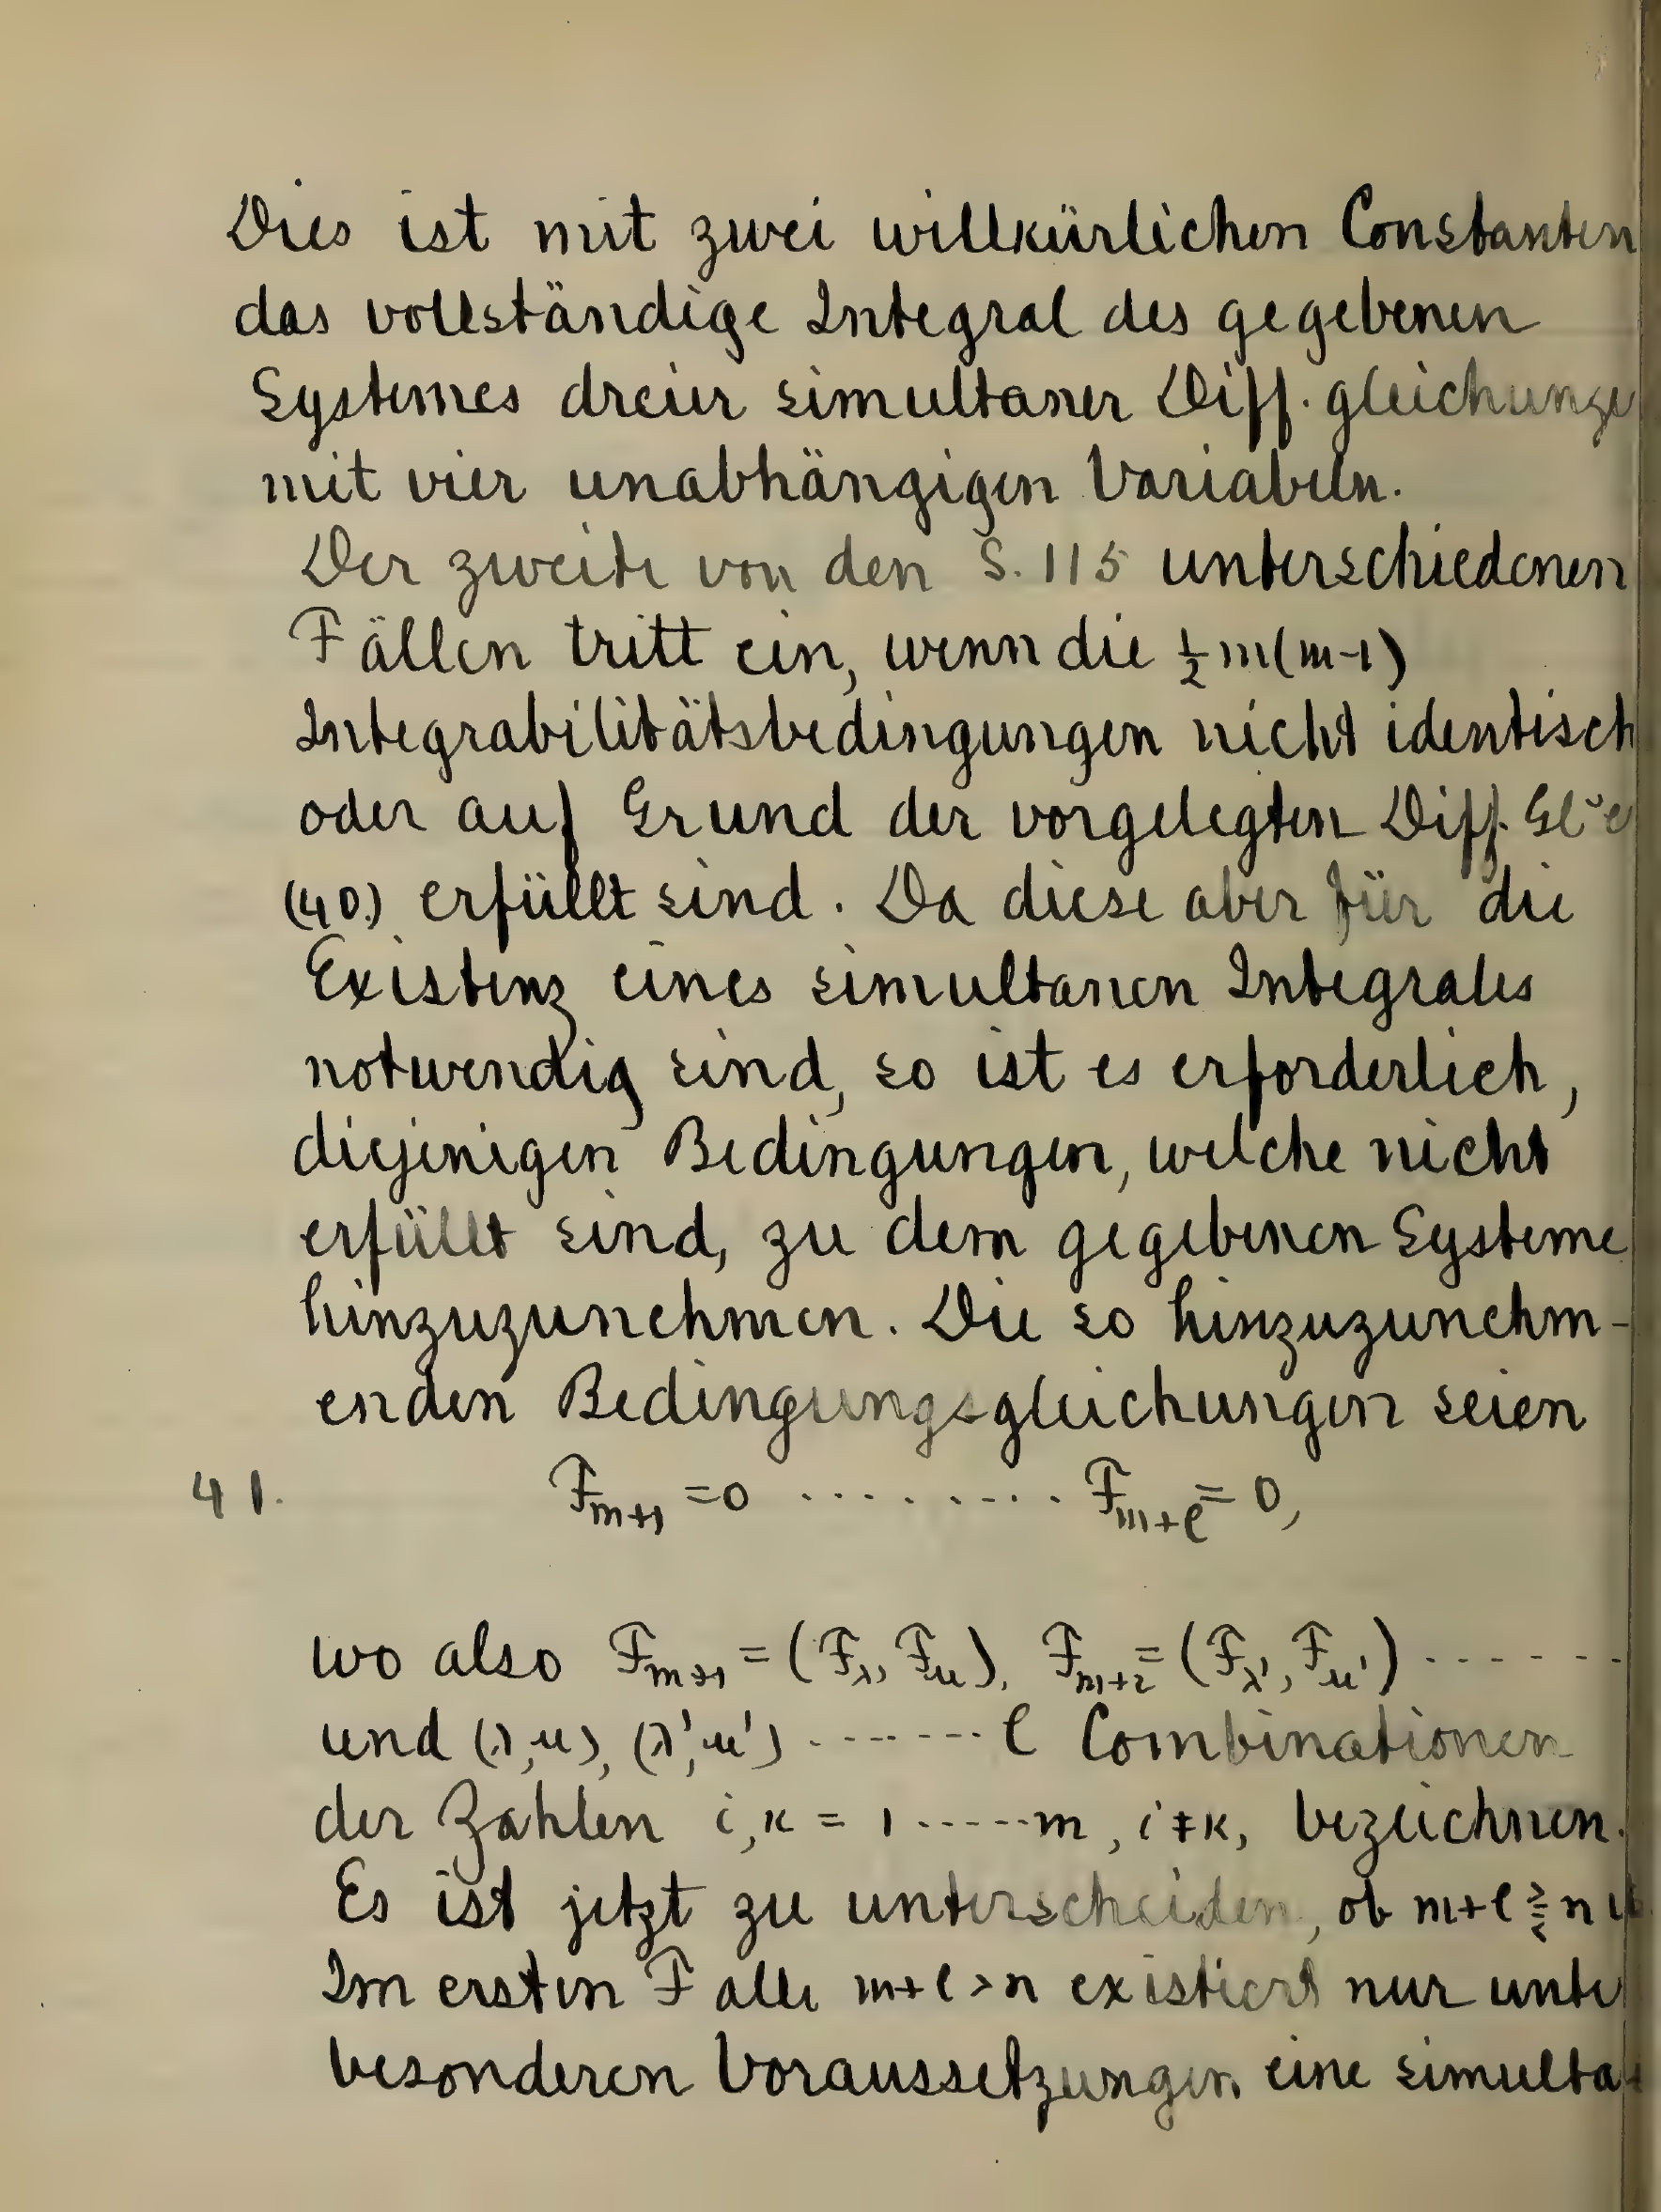 Dies ist mit zwei willkürlichen Constanten
das vollständige Integral des gegebenen
Systemes dreier simultaner Diff. gleichunge
mit vier unabhängigen Variabeln.
Der zweite von den S. 115 unterschiedenen
Fällen tritt ein, wenn die ½ m(m-1)
Integrabilitätsbedingungen nicht identisch
oder auf Grund der vorgelegten Diff. Gl
(40.) erfüllt sind. Da diese aber für die
Existenz eines simultanen Integrales
notwendig sind, so ist es erforderlich,
diejenigen Bedingungen, welche nicht
erfüllt sind, zu dem gegebenen Systeme
hinzuzunehmen. Die so hinzuzunehm-
enden Bedingungsgleichungen seien
41. F_{m+1} = 0 ......... F_{m+l} = 0,
wo also F_{m+1} = (F_λ, F_μ), F_{m+2} = (F_λ', F_μ') ------
und (λ,μ), (λ',μ') ------- l Combinationen
der Zahlen i,κ = 1 ------ m, i ≠ κ, bezeichnen.
Es ist jetzt zu unterscheiden, ob m+l ⪌ n
Im ersten Falle m+l > n existiert nur unte
besonderen Voraussetzungen eine simulta